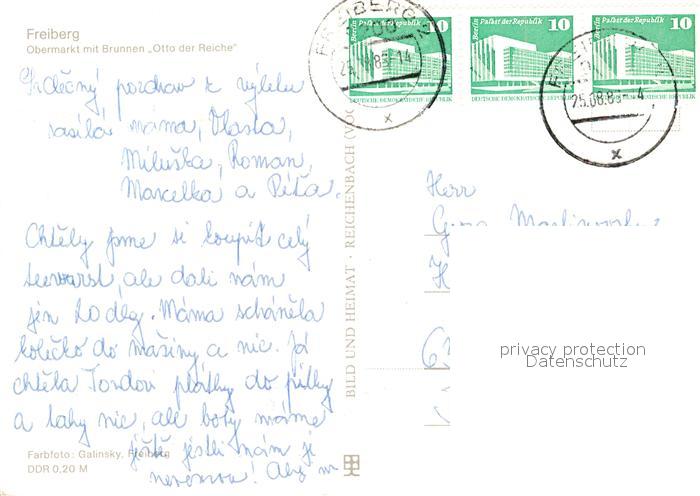 Freiberg
Obermarkt mit Brunnen „Otto der Reiche"
Srdečný pozdrav z výletu
zasílá máma, Vlasta,
Miluška, Roman,
Marcelka a Péťa.
Chtěly jsme si koupit celý
ale dali nám
jen 20 dkg. Máma scháněla
kolečko do mašiny a nic. Já
chtěla Jordovi plátky do pilky
a taky nic, ale boty máme
ještě jestli nám je
nevezmou! Aby
Farbfoto: Galinsky, Freiberg
DDR 0,20 M
BILD UND HEIMAT · REICHENBACH (VOG
FREIBERG 2
25.08.83-14
Berlin Palast der Republik 10
DEUTSCHE DEMOKRATISCHE REPUBLIK
Berlin Palast der Republik 10
DEUTSCHE DEMOKRATISCHE REPUBLIK
Berlin Palast der Republik 10
DEUTSCHE DEMOKRATISCHE REPUBLIK
25.08.8
x
x
Herr
H
privacy protection
Datenschutz